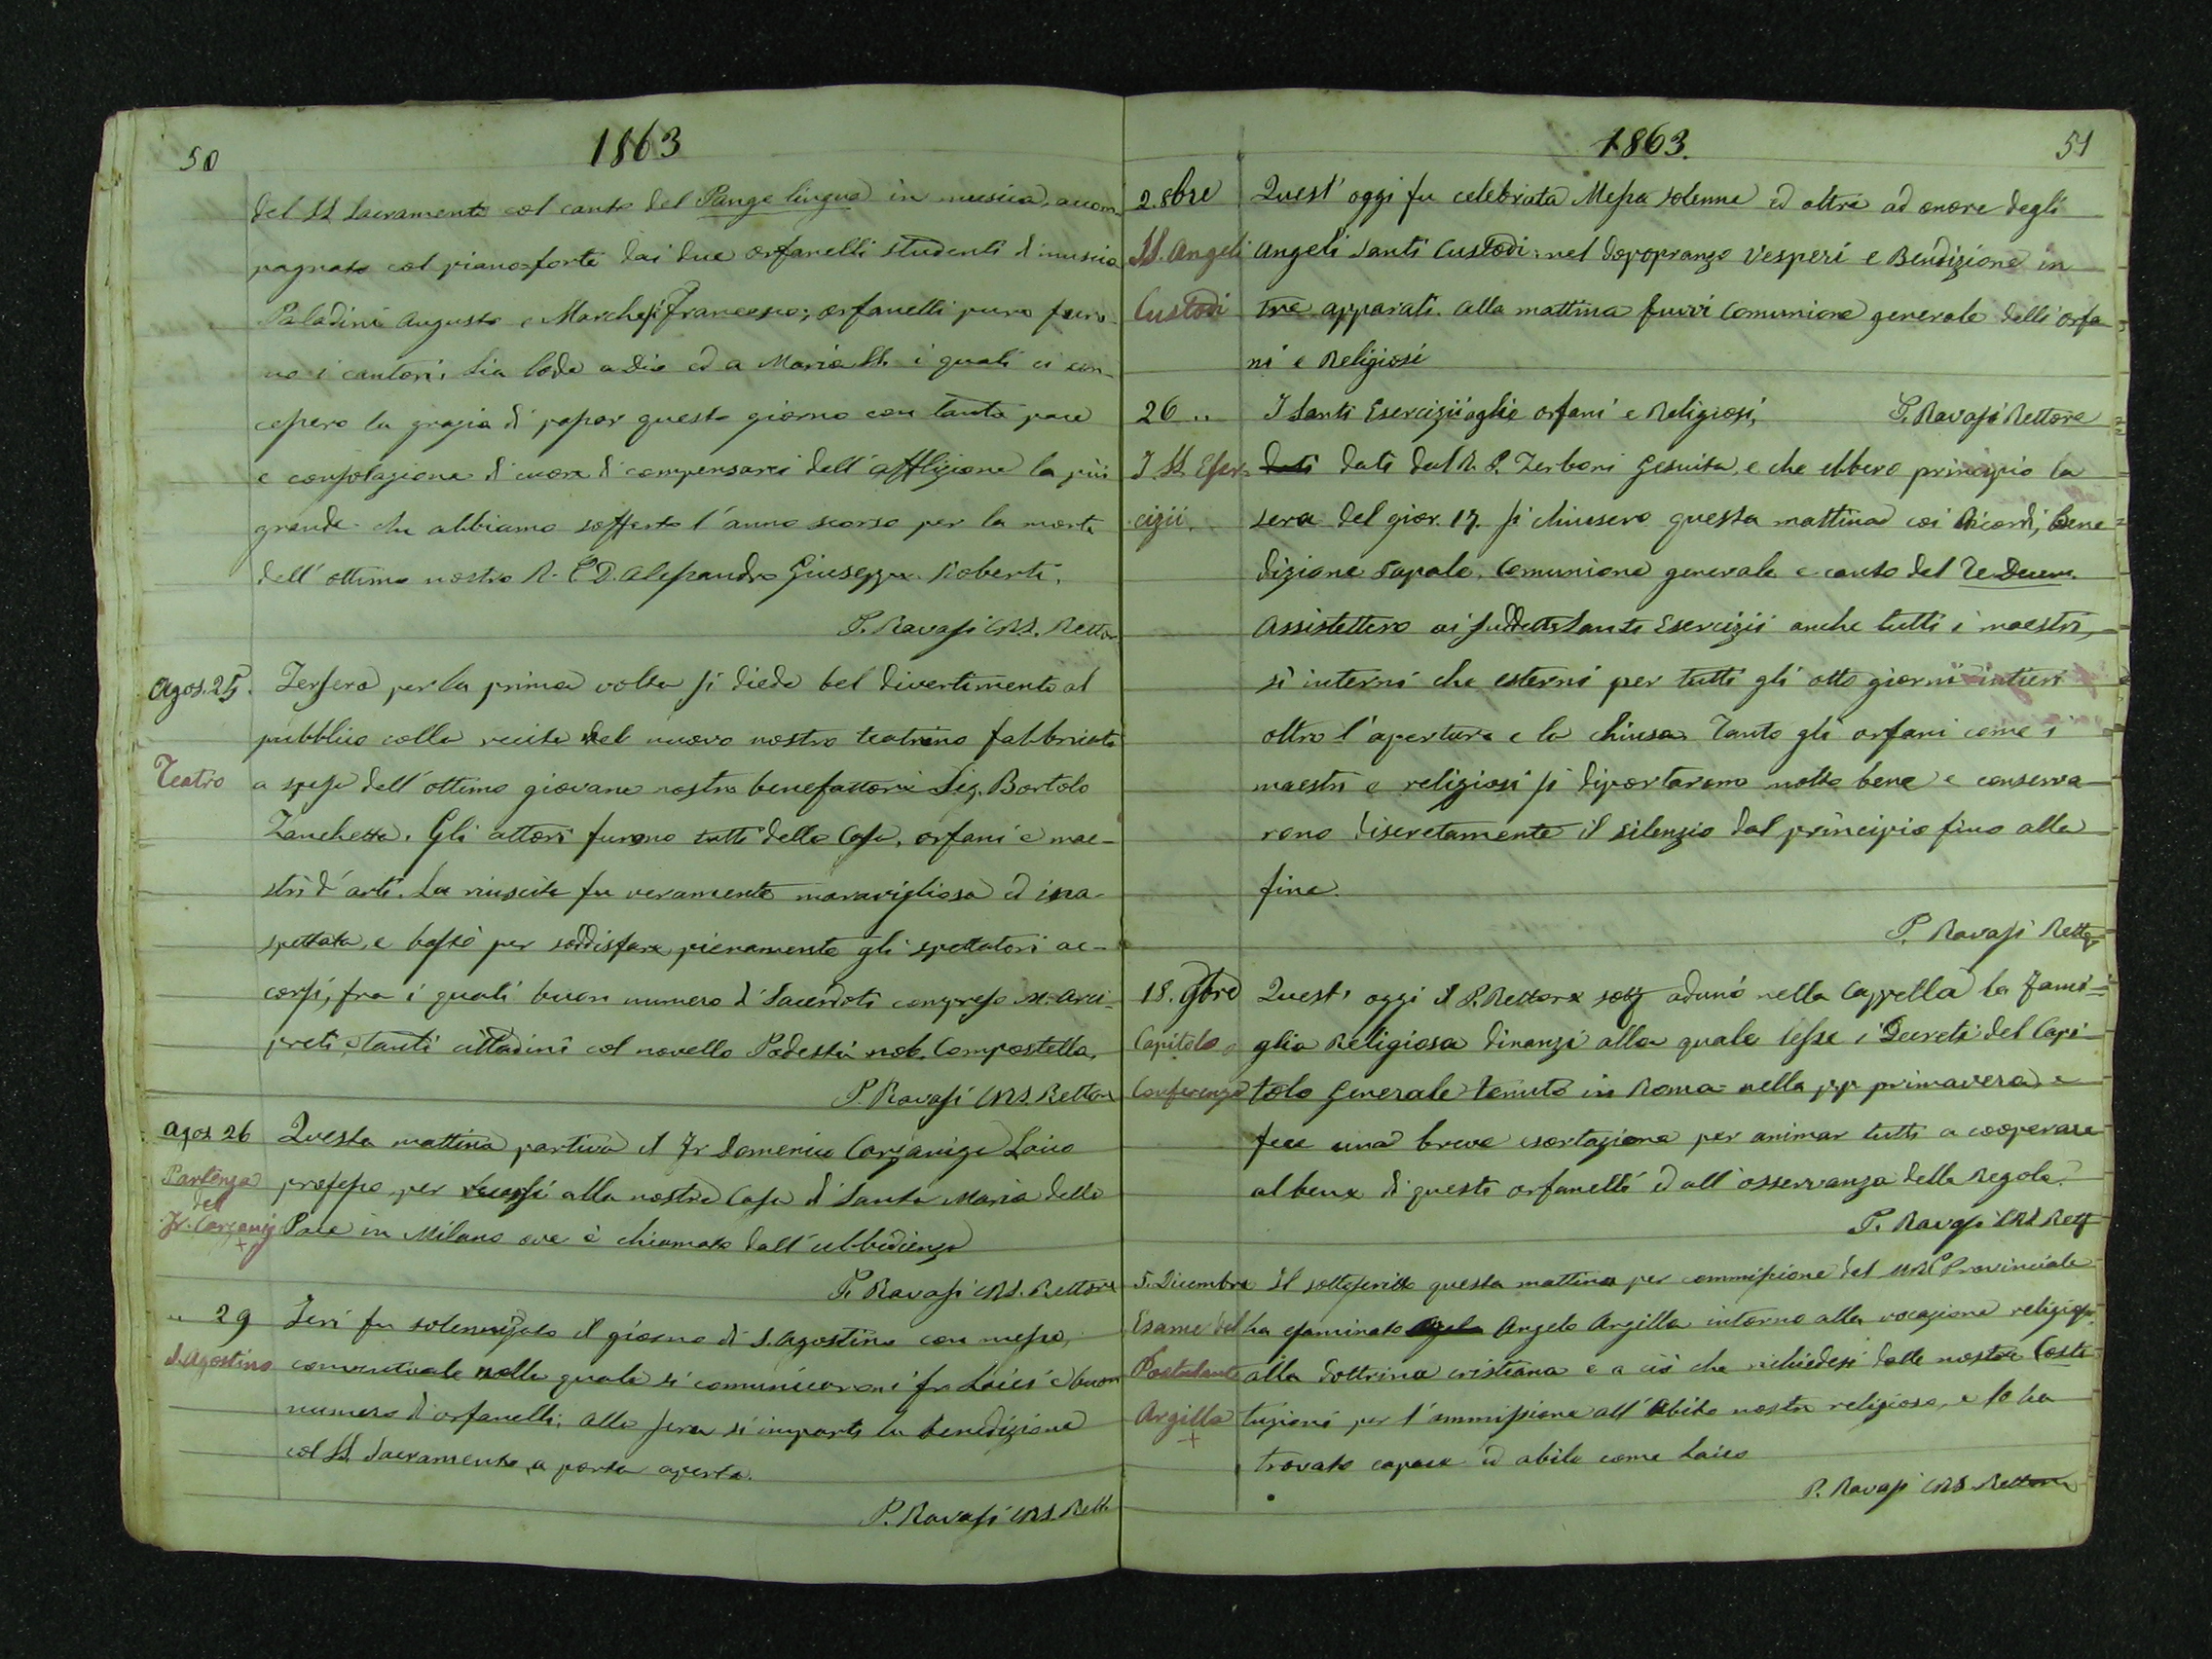 50
1863
del SS. Sacramento col canto del Pange lingua in musica, accom-
pagnato col piano-forte dai due orfanelli studenti di musica
Paladini Augusto e Marchesi Francesco; orfanelli pure furo-
no i cantori. Sia lode a Dio ed a Maria SS. i quali ci con-
cessero la grazia di passar questo giorno con tanta pace
e consolazione di cuore di compensarci dell'afflizione la più
grande che abbiamo sofferto l'anno scorso per la morte
dell'ottimo nostro R. P. D. Alessandro Giuseppe Roberti.
P. Ravasi CRS. Rettor
Agos. 25. Jersera per la prima volta si diede bel divertimento al
pubblico colla recita nel nuovo nostro teatrino fabbricato
Teatro a spese dell'ottimo giovane nostro benefattore Sig. Bortolo
Zanchetta. Gli attori furono tutti della Casa, orfani e mae-
stri d'arti. La riuscita fu veramente maravigliosa ed ina-
spettata, e bastò per soddisfare pienamente gli spettatori ac-
corsi, fra i quali buon numero di Sacerdoti compreso Arci-
preti, e tanti cittadini col novello Podestà nob. Compostella.
P. Ravasi CRS. Rettore
Agos. 26 Questa mattina partiva il Fr. Domenico Corzaniga Laico
Partenza professo per recarsi alla nostra Casa di Santa Maria della
del
Fr. Corzanig. Pace in Milano ove è chiamato dall'ubbidienza
+
P. Ravasi CRS. Rettore
" 29 Jeri fu solennizzato il giorno di S. Agostino con messa
S. Agostino conventuale nella quale si comunicarono i fra Laici e buon
numero di orfanelli; alla sera si impartì la benedizione
col SS. Sacramento a porta aperta.
P. Ravasi CRS. Rett.
1863.
51
2. 8bre Quest'oggi fu celebrata Messa solenne ed altre ad onore degli
SS. Angeli Angeli Santi Custodi: nel dopopranzo Vesperi e Bendizione in
Custodi tre apparati. Alla mattina fuvvi Comunione generale delli orfa-
ni e Religiosi
26 " I Santi Esercizii aglie orfani e Religiosi, P. Ravasi Rettore
I SS. Eser- dati dati dal R. P. Zerboni Gesuita, e che ebbero principio la
cizii. sera del gior. 17. si chiusero questa mattina coi Ricordi, Bene-
dizione Papale, Comunione generale e canto del Te Deum.
Assistettero ai suddetti Santi Esercizii anche tutti i maestri,
sì interni che esterni per tutti gli otto giorni intieri
oltre l'apertura e la chiusa. Tanto gli orfani come i
maestri e religiosi si diportarono molto bene e conserva-
rono discretamente il silenzio dal principio fino alla
fine.
P. Ravasi Rettor
18. 9bre Quest'oggi il P. Rettore sott. adunò nella Cappella la Fami-
Capitolo e glia Religiosa dinanzi alla quale lesse i Decreti del Capi-
Conferenza tolo Generale tenuto in Roma nella pp. primavera e
fece una breve esortazione per animar tutti a cooperare
al bene di questi orfanelli ed all'osservanza della Regola.
P. Ravasi CRS Rett
5. Dicembre Il sottoscritto questa mattina per commissione del MRP Provinciale
Esame del ha esaminato Angelo Argilla intorno alla vocazione religiosa,
Postulante alla dottrina cristiana e a ciò che richiedesi dalle nostre Costi-
Argilla tuzioni per l'ammissione all'Abito nostro religioso, e lo ha
+
trovato capace ed abile come Laico
P. Ravasi CRS. Rettore